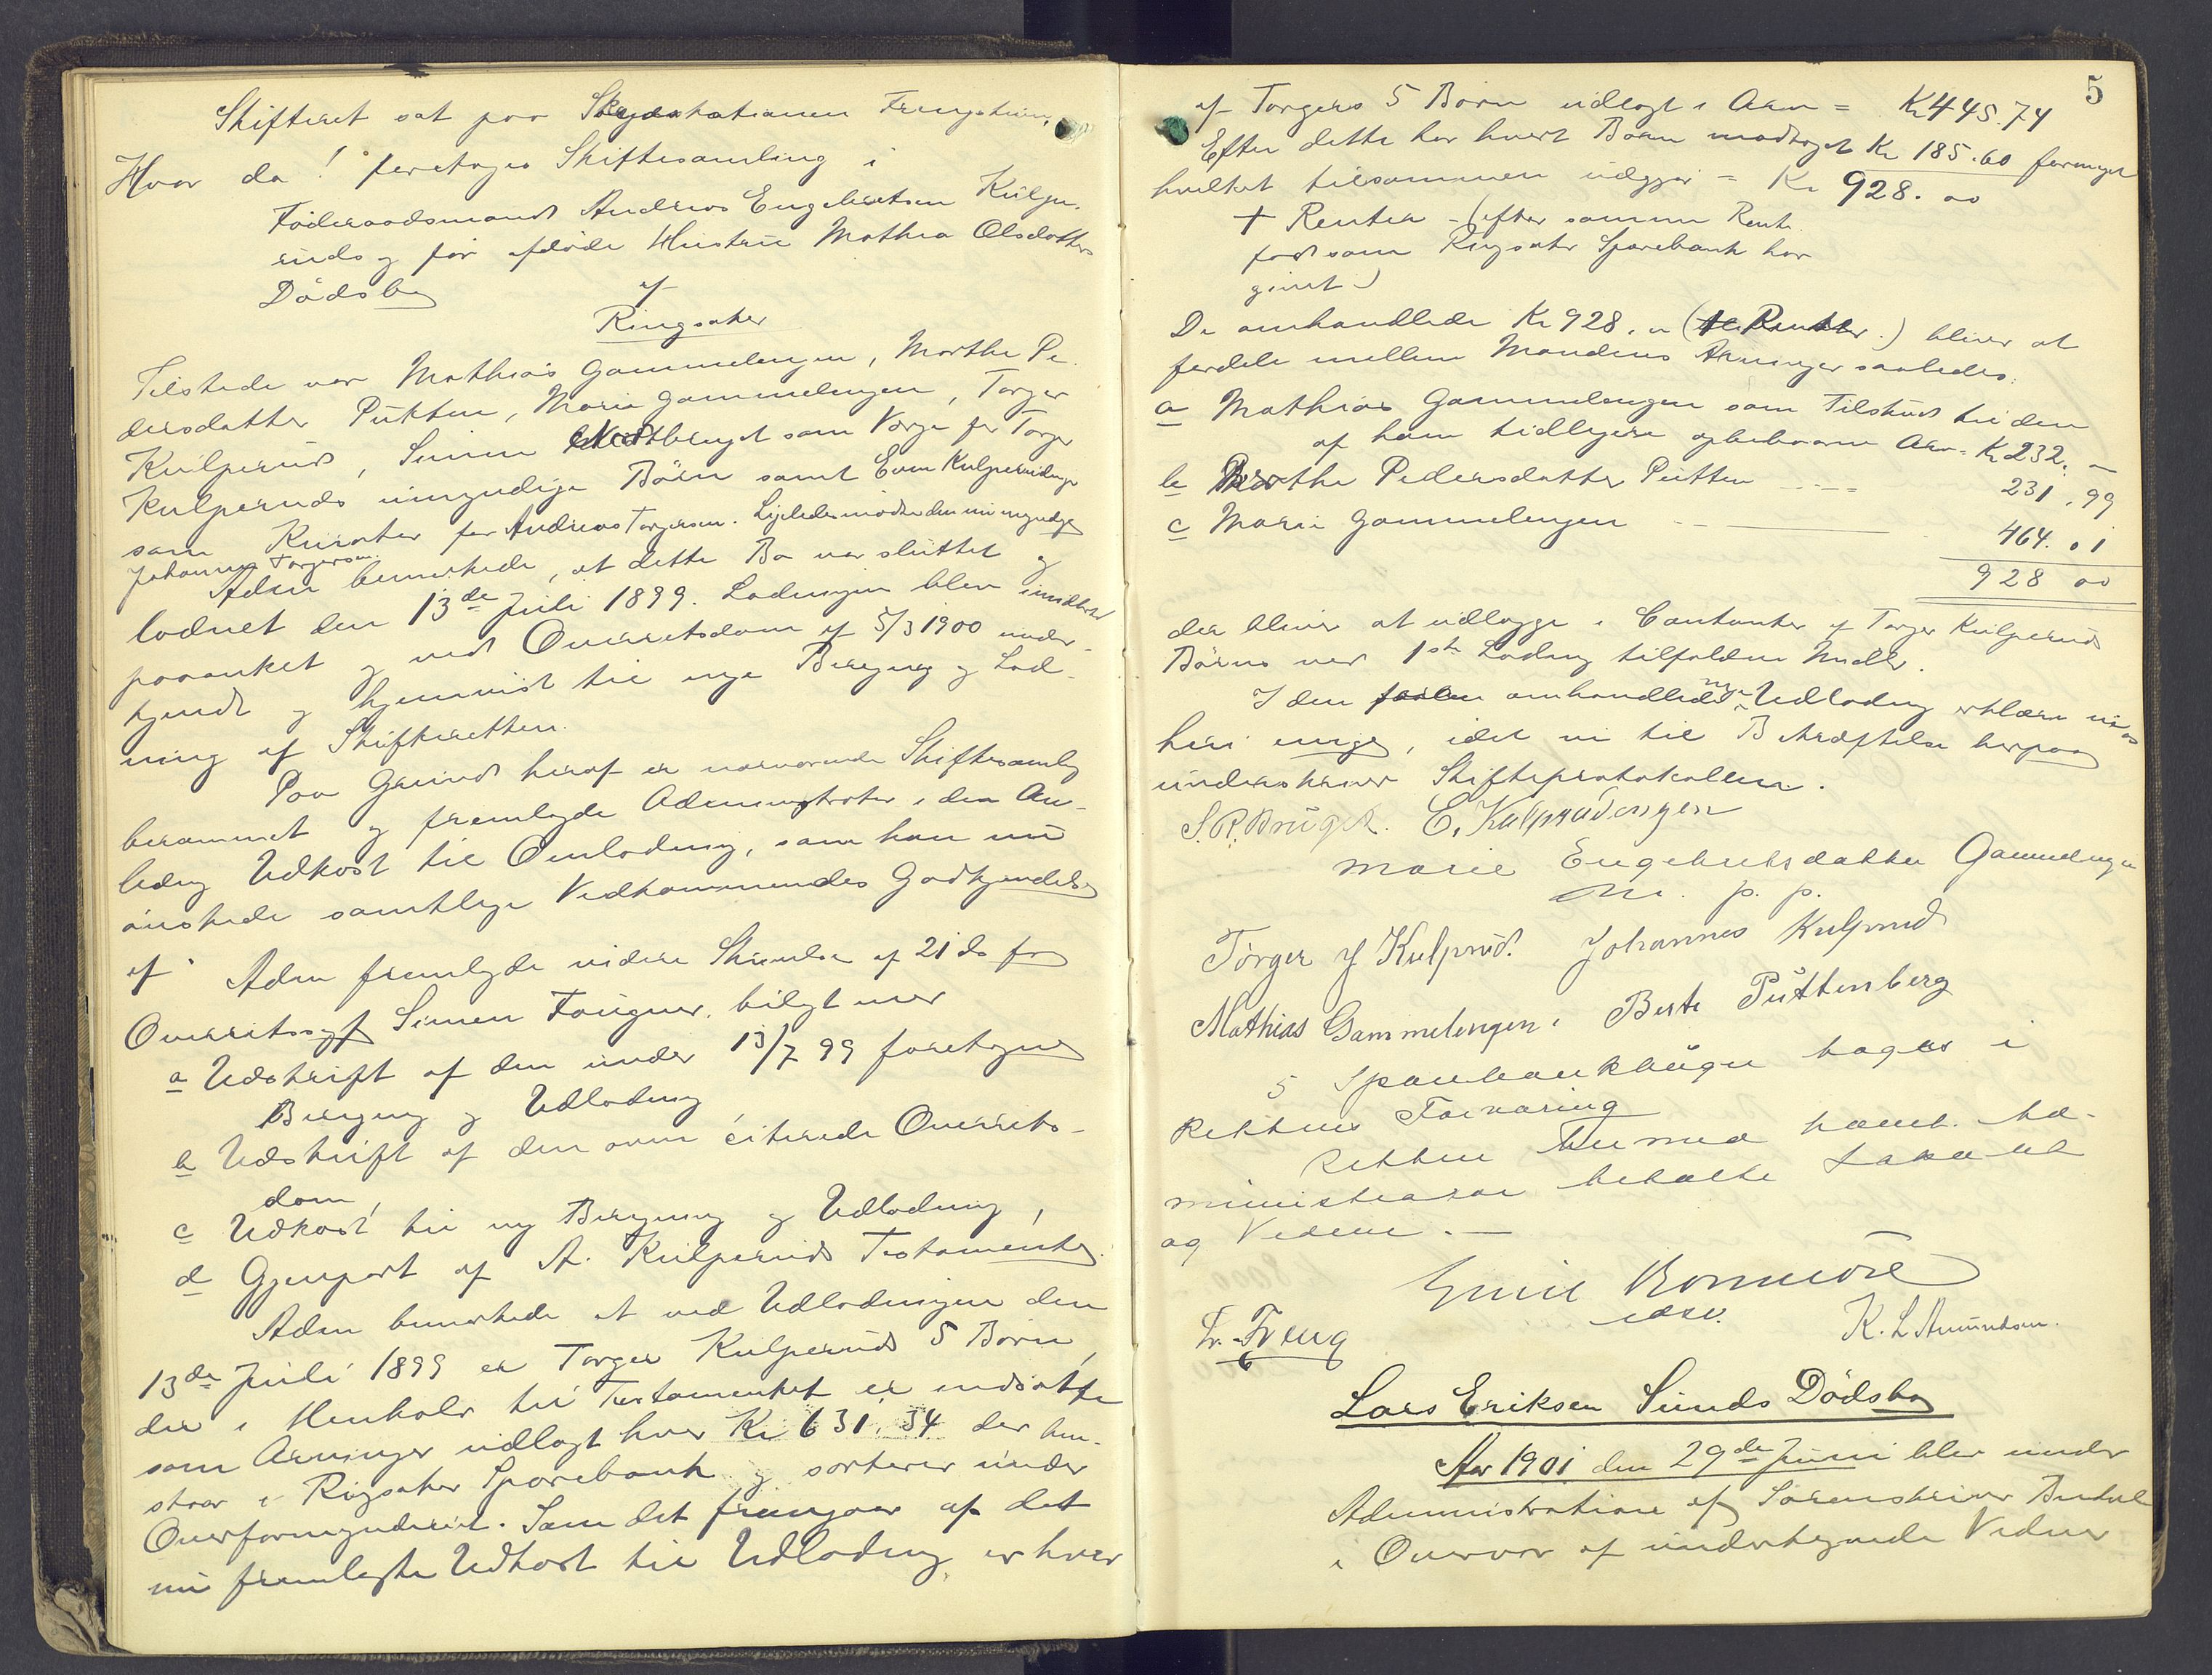 Skifteret sat paa Skydsstationen Frengstuen,
Hvor da! foretoges Skiftesamling i
Föderaadsmand Andreas Engebretsen Kulpe-
ruds og før afdöde Hustru Mathea Olsdatters
Dödsbo af
Ringsaker
Tilstede var Mathias Gammelengen, Marthe Pe-
dersdatter Putten, Marie Gammelengen, Torger
Kulperud, Simen som Værge for Torger
Kulperuds umyndige Börn samt Even Kulperudengen
som Kurator for Andreas Torgersen. Ligeledes mødte den umyndige
Johannes Torgersen.
Adm bemerkede, at dette Bo var sluttet og
lodnet den 13de Juli 1899. Lodningen blev imidlertid
paaanket og ved Overretsdom af 5/3 1900 under-
kjendt og hjemvist til nye Beregning og Lod-
ning af Skifteretten.
Paa Grund heraf er nærværende Skiftesamling
berammet og fremlagde Administrator i den An-
ledng Udkast til Omlodning, som han nu
önskede samtlige Vedkommendes Godkjendelse
af. Adm fremlagde videre Skrivelse af 21 ds fra
Overretssagf Simen Fougner, bilagt med
a Udskrift af den under 13/7 99 foretagne
Beregning og Udlodning
b Udskrift af den oven citerede Overrets-
dom,
c Udkast til ny Beregning og Udlodning,
d Gjenpart af A. Kulperuds Testamente.
Adm bemerkede at ved Udlodningen den
13de Juli 1899 er Torger Kulperuds 5 Børn,
der i Henhold til Testamentet er indsatte
som Arvinger udlagt hver Kr 631.34 der hen-
staar i Ringsaker Sparebank og sorterer under
Overformynderiet. Som det fremgaar af det
nu fremlagte Udkast til Udlodning er hver
5
af Torgers 5 Børn udlagt i Arv = Kr 445.74
Efter dette har hvert Barn modtaget Kr 185.60 formeget
hvilket tilsammen udgjør = Kr 928.00
+ Renter - (efter samme Rente
fod som Ringsaker Sparebank har
givet)
De omhandlede Kr 928.00 (+ Renter.) bliver at
fordele mellem Mandens Arvinger saaledes:
a Mathias Gammelengen som Tilskud til den
af ham tidligere oplebaarne Arv = Kr 232. —
b Marthe Pedersdatter Putten - - - - 231.99
c Marie Gammelengen - 464.01
928 00
der bliver at udlægge i Contanter af Torger Kulperuds
Börns ved 1ste Lodning tilfaldne Midler.
I den omhandlede nye Udlodning erklære vi os
heri enige, idet vi til Bekræftelse herpaa
underskriver Skifteprotokollen.
S. P. Bruget. E. Kulprudengen
Marie Engebretsdatter Gammelengen
m. p. p.
Torger Kulprud. Johannes Kulprud
Mathias Gammelengen. Berte Puttenberg
5 Sparebankbøger toges i
Rettens Forvaring
Retten hermed hævet. Ad-
ministrator betalte Lokalet
og Vidner. —
L. Freng
K. L. Amundsen.
Lars Eriksen Sunds Dödsbo
Aar 1901 den 29de Juni blev under
Administration af Sorenskriver
i Overvær af undertegnede Vidner